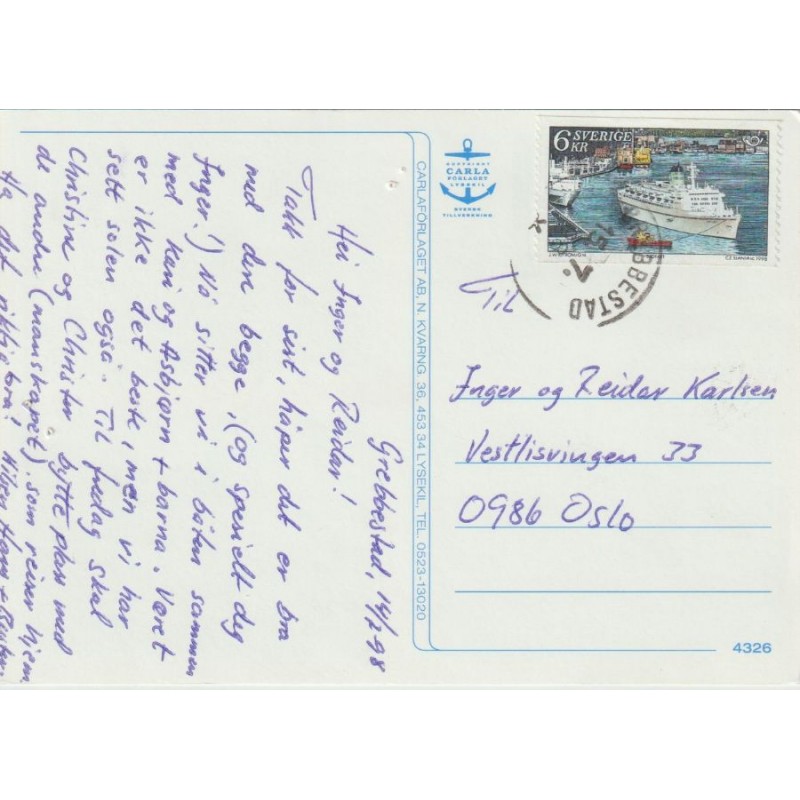 Grebbestad, 14/7-98
Hei Inger og Reidar!
Takk for sist, håper det er bra
med dere begge, (og spesielt deg
Inger!) Nå sitter vi i båten sammen
med Kari og Asbjørn + barna. Været
er ikke det beste, men vi har
sett solen også. Til fredag skal
Christine og Christer bytte plass med
de andre (mannskapet), som reiser hjem.
Ha det riktig bra! Hilsen Hans +
CARLAFÖRLAGET AB, N. KVARNG. 36, 453 34 LYSEKIL, TEL. 0523-13020
COPYRIGHT
CARLA
FÖRLAGET
LYSEKIL
SVENSK
TILLVERKNING
6 SVERIGE
KR
1998
BBESTAD
15
7.
Til
Inger og Reidar Karlsen
Vestlisvingen 33
0986 Oslo
4326